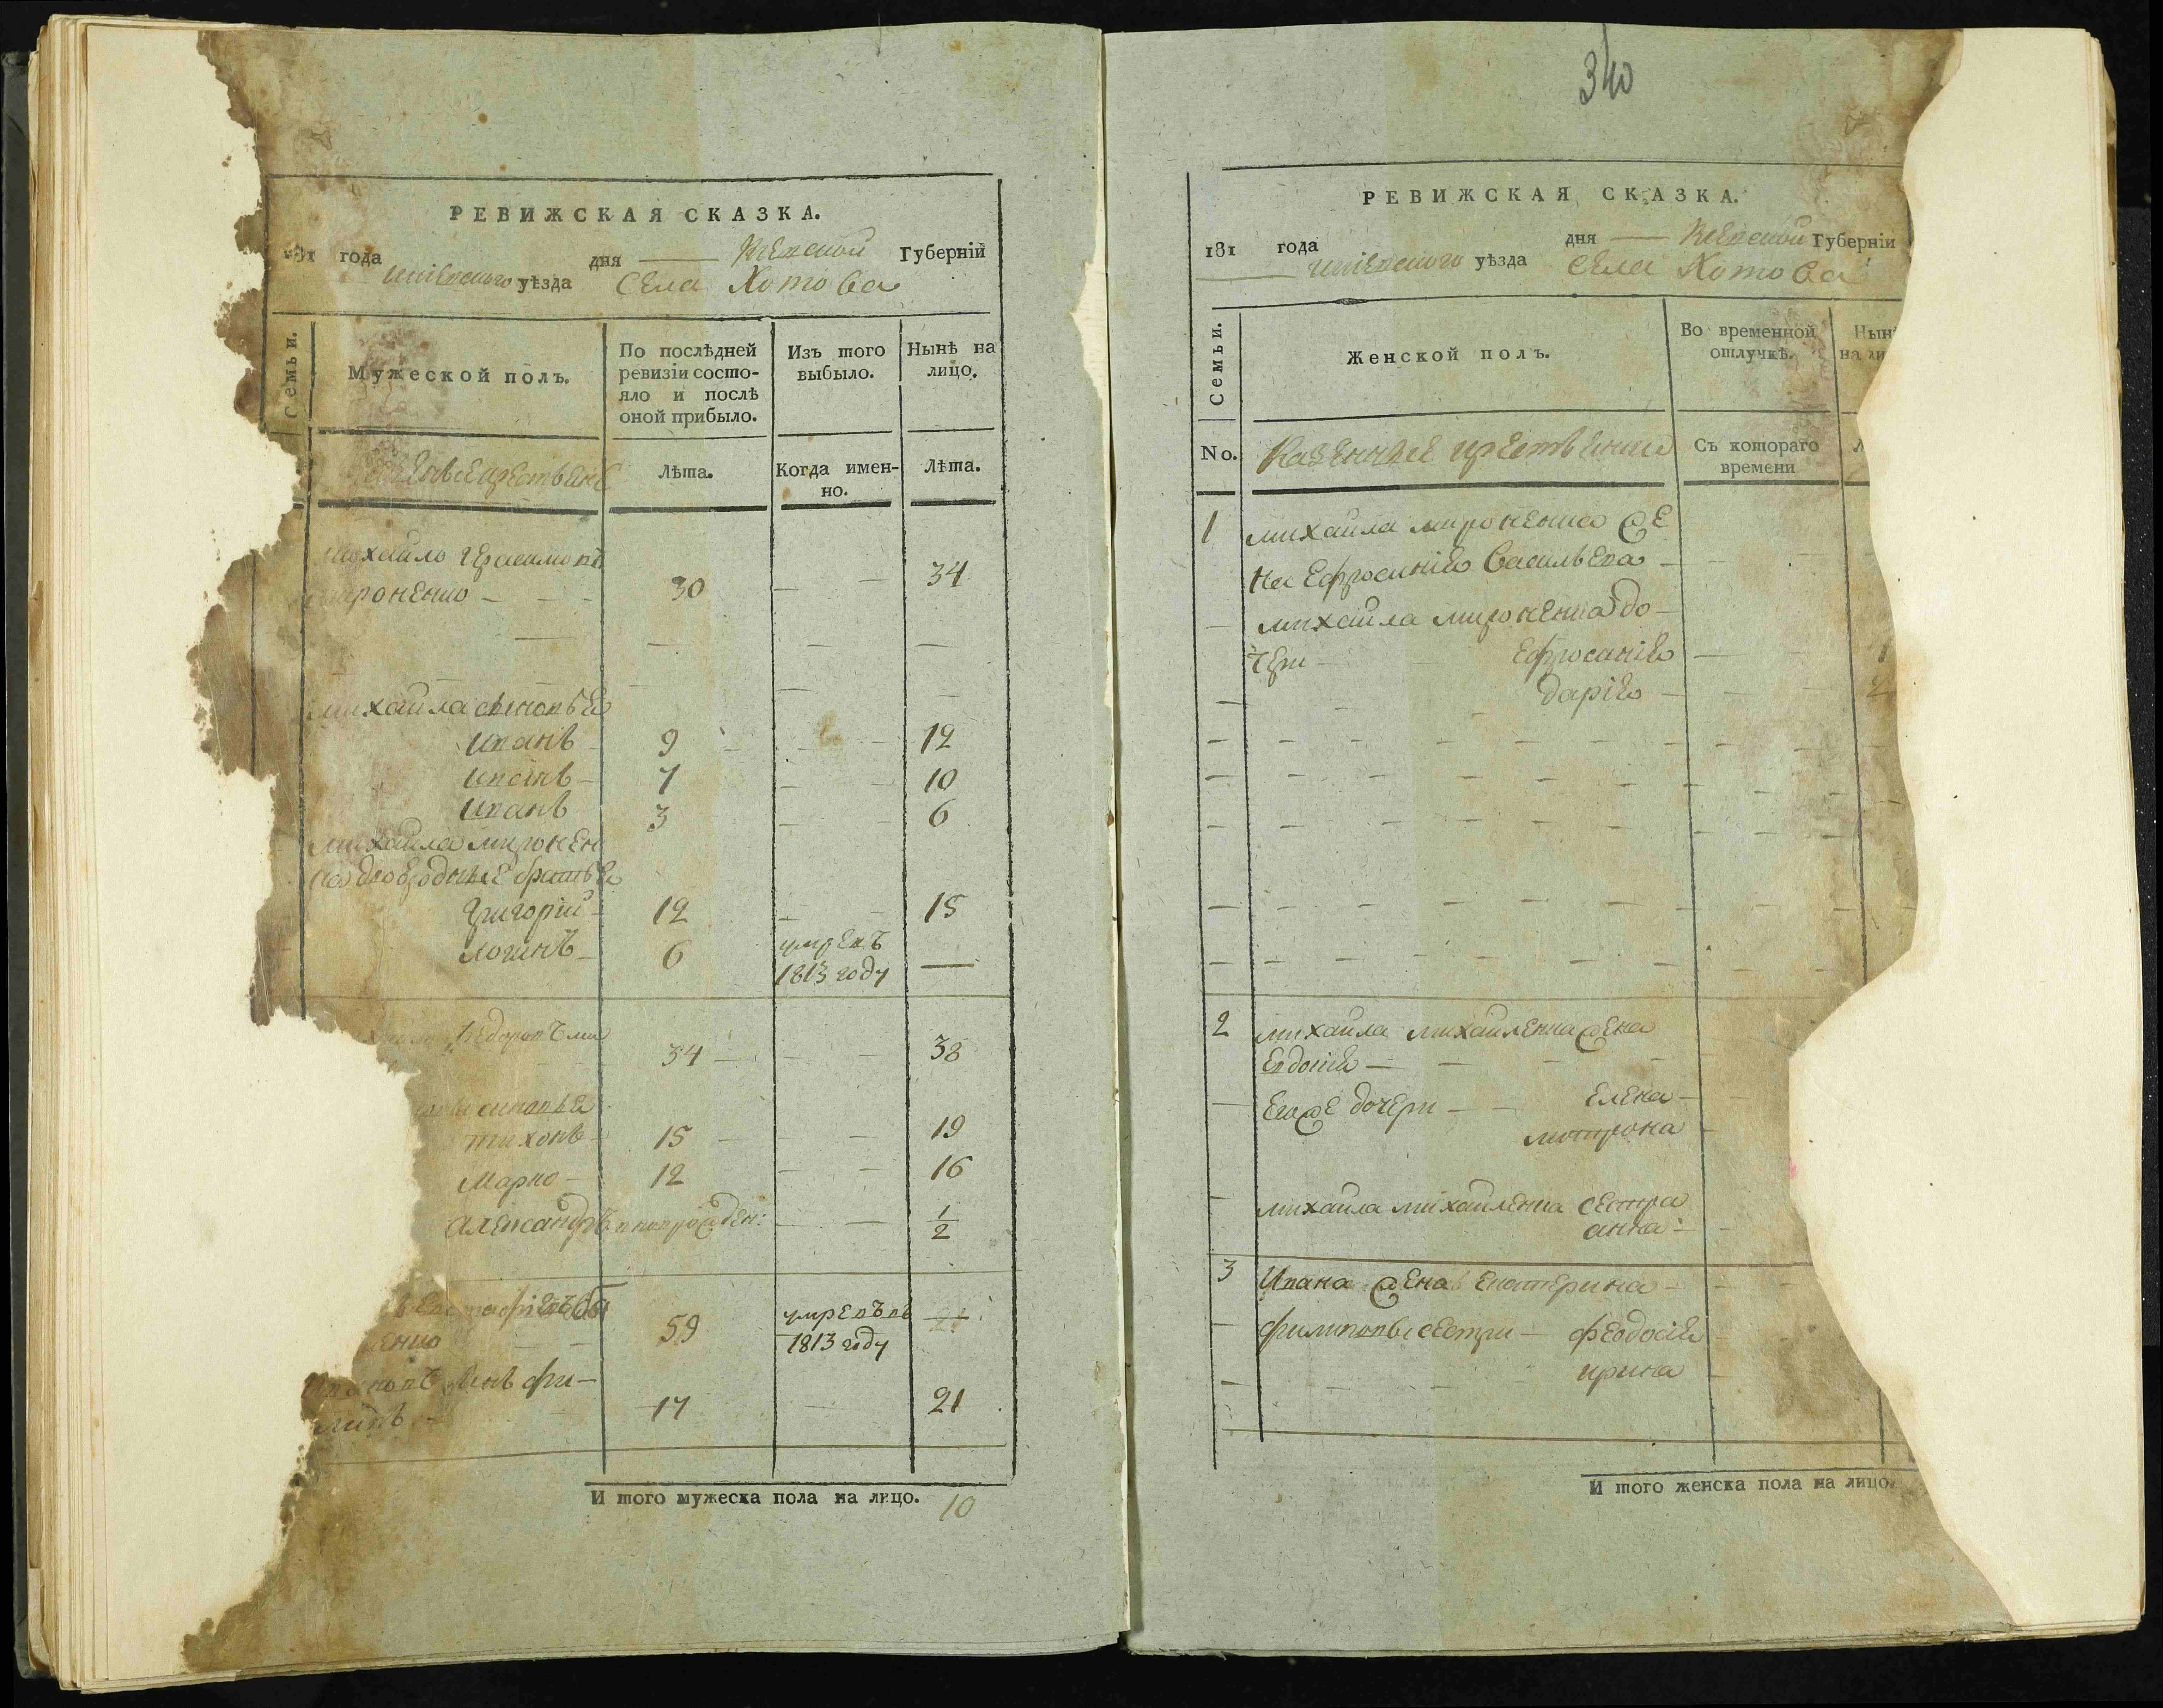 РЕВИЖСКАЯ СКАЗКА.
181 года дня — Киевской Губерніи
Кіевского уѣзда Села Хотова
Семьи.
Мужеской полъ.
По послѣдней ревизіи состо-
яло и послѣ
оной прибыло.
Изъ того
выбыло.
Нынѣ на
лицо.
Лѣта.
Когда имен-
но.
Лѣта.
Михайло Герасимовъ
Мироненко — 30 — 34
Михайла сыновья
Иванъ 9 — 12
Иванъ 7 — 10
Иванъ 3 — 6
Михайла Миронен
ка двоюродные братья
Григорій 12 — 15
Логинъ 6 умре въ
1813 году —
Федоровъ Ми
34 — 38
сыновья
Тихонъ 15 — 19
Марко 12 — 16
Александръ новорожден: — 1/2
59 умре въ
1813 году
сынъ Фи-
липъ 17 — 21
И того мужеска пола на лицо. 10
340
РЕВИЖСКАЯ СКАЗКА.
181 года дня — Киевской Губерніи
Кіевского уѣзда Села Хотова
Семьи.
Женской полъ.
Во временной
отлучкѣ.
No.
Казенные крестьянки
Съ котораго
времени
1 Михайла Мироненка же
на Ефросинія Васильева —
Михайла Мироненка до-
чери Ефросинія — 1
Дарія — 2
2 Михайла Михайленка жена
Евдокія —
Егоже дочери — Елена —
Мотрона
Михайла Михайленка сестра
Анна —
3 Ивана жена Екатерина —
Филиповы сестри — Феодосія
Ирина
И того женска пола на лицо.